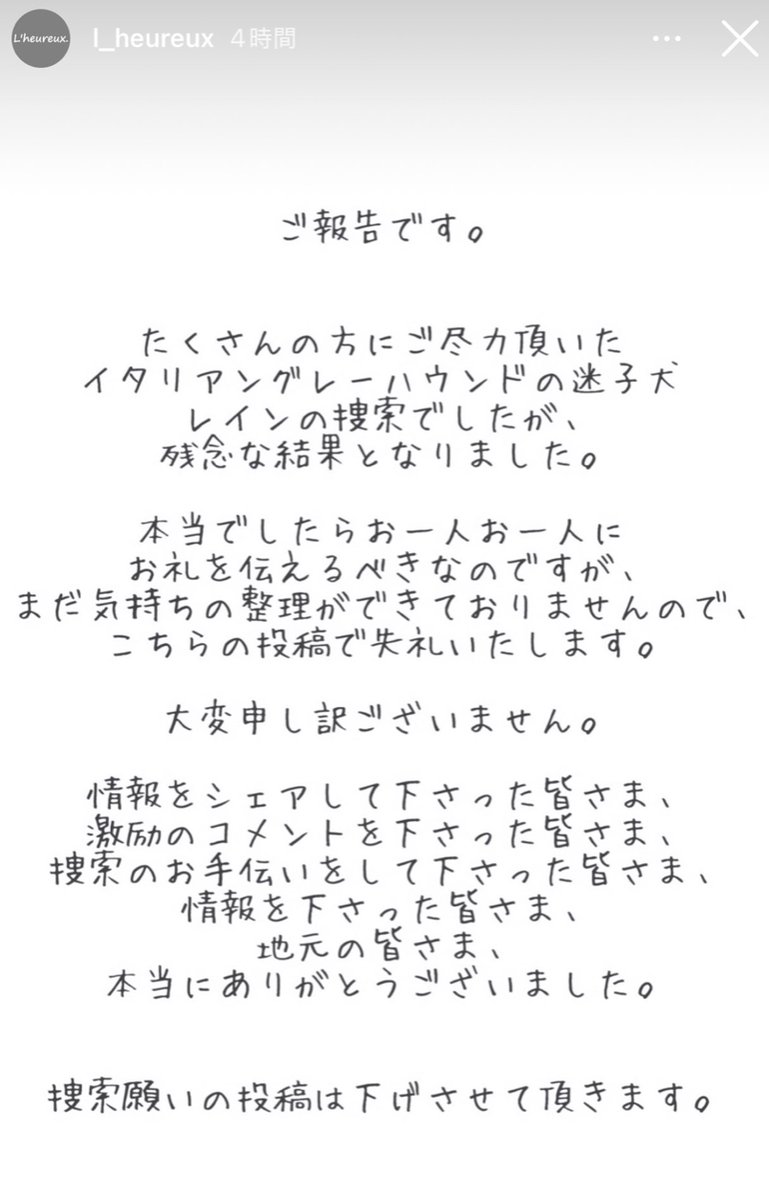 L'heureux.
l_heureux 4時間
ご報告です。
たくさんの方にご尽力頂いた
イタリアングレーハウンドの迷子犬
レインの捜索でしたが、
残念な結果となりました。
本当でしたらお一人お一人に
お礼を伝えるべきなのですが、
まだ気持ちの整理ができておりませんので、
こちらの投稿で失礼いたします。
大変申し訳ございません。
情報をシェアして下さった皆さま、
激励のコメントを下さった皆さま、
捜索のお手伝いをして下さった皆さま、
情報を下さった皆さま、
地元の皆さま、
本当にありがとうございました。
捜索願いの投稿は下げさせて頂きます。